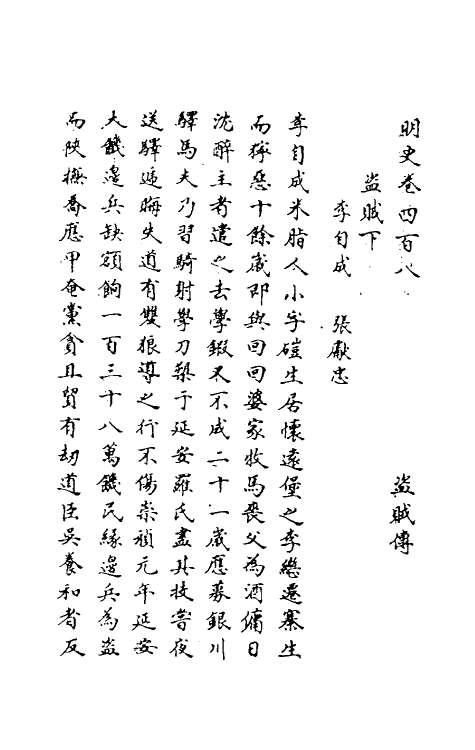 明史卷四百八
盜賊傳
盜賊下
李自成 張獻忠
李自成米脂人小字磓生居懷遠堡之李繼遷寨生
而獰惡十餘歲即與回回婆家牧馬喪父為酒傭日
沈醉主者遣之去學鍛又不成二十一歲應募銀川
驛馬夫乃習騎射學刀槊于延安羅氏盡其技嘗夜
送驛遞晦失道有雙狼導之行不傷崇禎元年延安
大饑邊兵缺額餉一百三十八萬饑民緣邊兵為盜
而陝撫喬應甲奄黨貪且貿有劫道臣吳養和者反